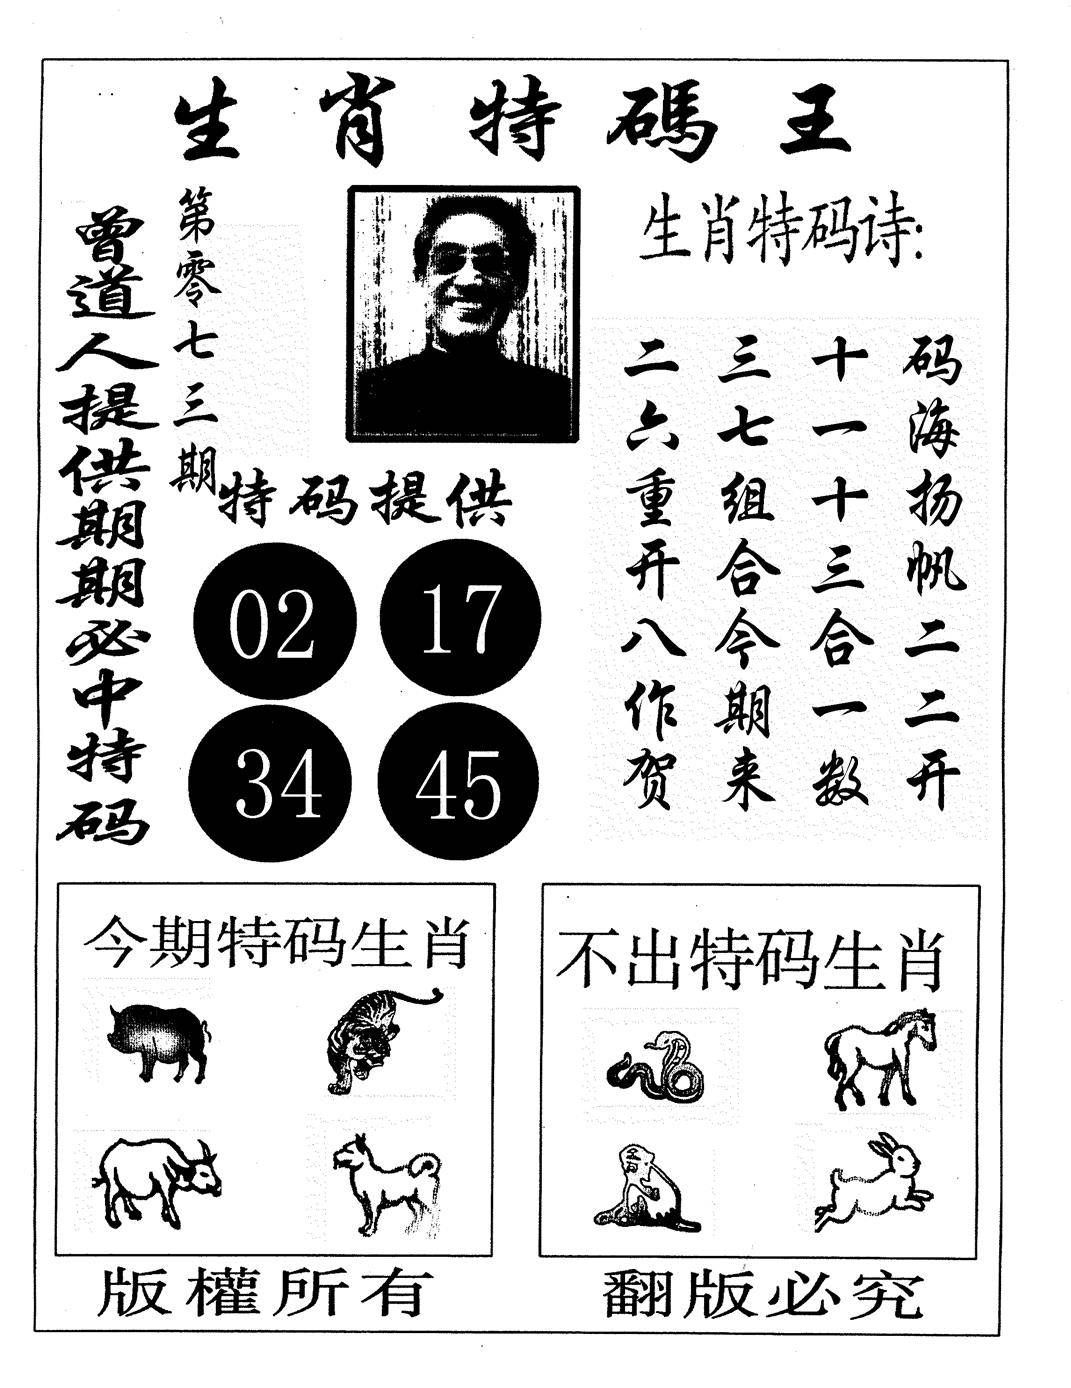 生肖特碼王
曾道人提供期期必中特码
第零七三期
生肖特码诗:
码海扬帆二二开
十一十三合一数
三七组合今期来
二六重开八作贺
特码提供
02
17
34
45
今期特码生肖
不出特码生肖
版權所有
翻版必究